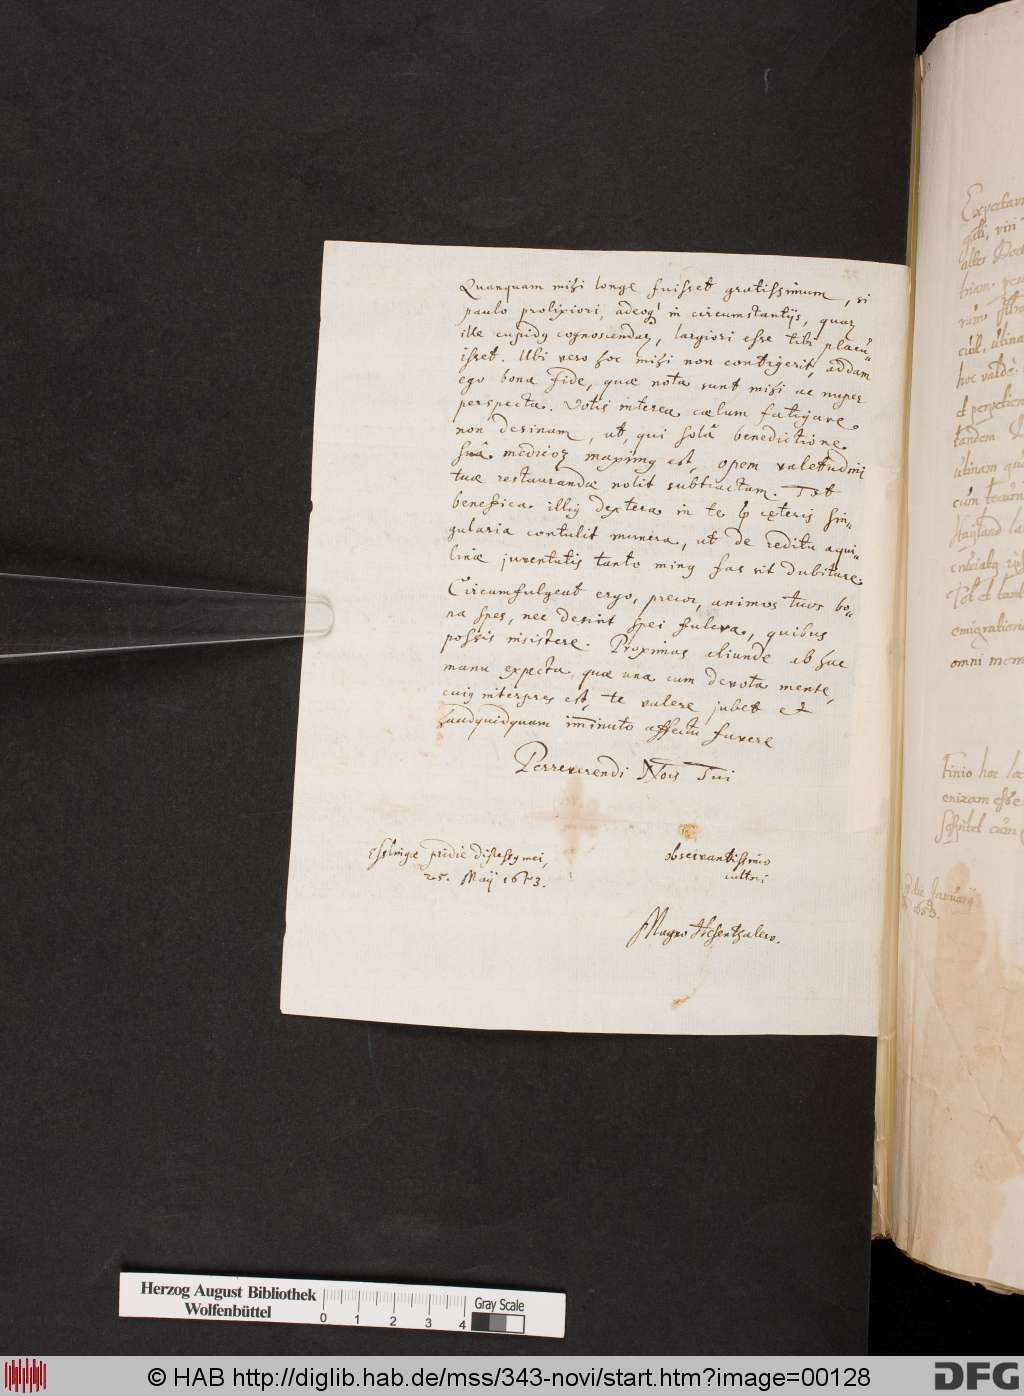 Quanquam mihi longe fuisset gratissimum, si
paulo prolixiori, adeoq; in circumstantijs, quar
ille cupidq cognoscendar, largiori esse tibi placu=
isset. Ubi vero hoc mihi non contigerit, addam
ego bona fide, quæ nota sunt mihi ac nuper
perspecta. Votis interea cælum fatigare
non desinam, ut, qui solâ benedictione
suâ medicor maximq est, opem valetudini
tuæ restaurandæ nolit subtractam. Tot
benefica illiq dextera in te p cęteris sin=
gularia contulit munera, ut de reditu aqui=
linæ juventutis tanto minq fas sit dubitare.
Circumfulgeat ergo, precor, animos tuos bo=
na spes, nec desint spei fulcra, quibus
possis insistere. Proximas aliunde ab hac
manu expecta, quæ una cum devota mente,
cuiq interpres est, te valere jubet et
haudquidquam imminuto affectu favere
Perreverendi Nois Tui
Esslingæ pridie discessq mei, observantissimo
25. Maij 1653. cultori
Magno Hesenthalero.
Expectav
alter
hoc valdè
et perpetien
tandem
utinam
emigration
omni mem
Finio hoc
enixam esse
die Januarij
1653.
Herzog August Bibliothek
Wolfenbüttel
0 1 2 3 4
Gray Scale
© HAB http://diglib.hab.de/mss/343-novi/start.htm?image=00128
DFG